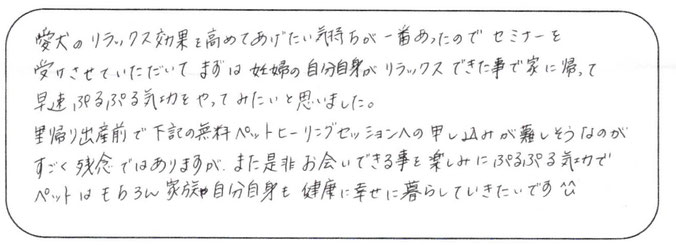 愛犬のリラックス効果を高めてあげたい気持ちが一番あったのでセミナーを
受けさせていただいてまずは妊婦の自分自身がリラックスできた事で家に帰って
早速ぷるぷる気功をやってみたいと思いました。
里帰り出産前で下記の無料ペットヒーリングセッションへの申し込みが難しそうなのが
すごく残念ではありますが、また是非お会いできる事を楽しみにぷるぷる気功で
ペットはもちろん家族や自分自身も健康に幸せに暮らしていきたいです^^